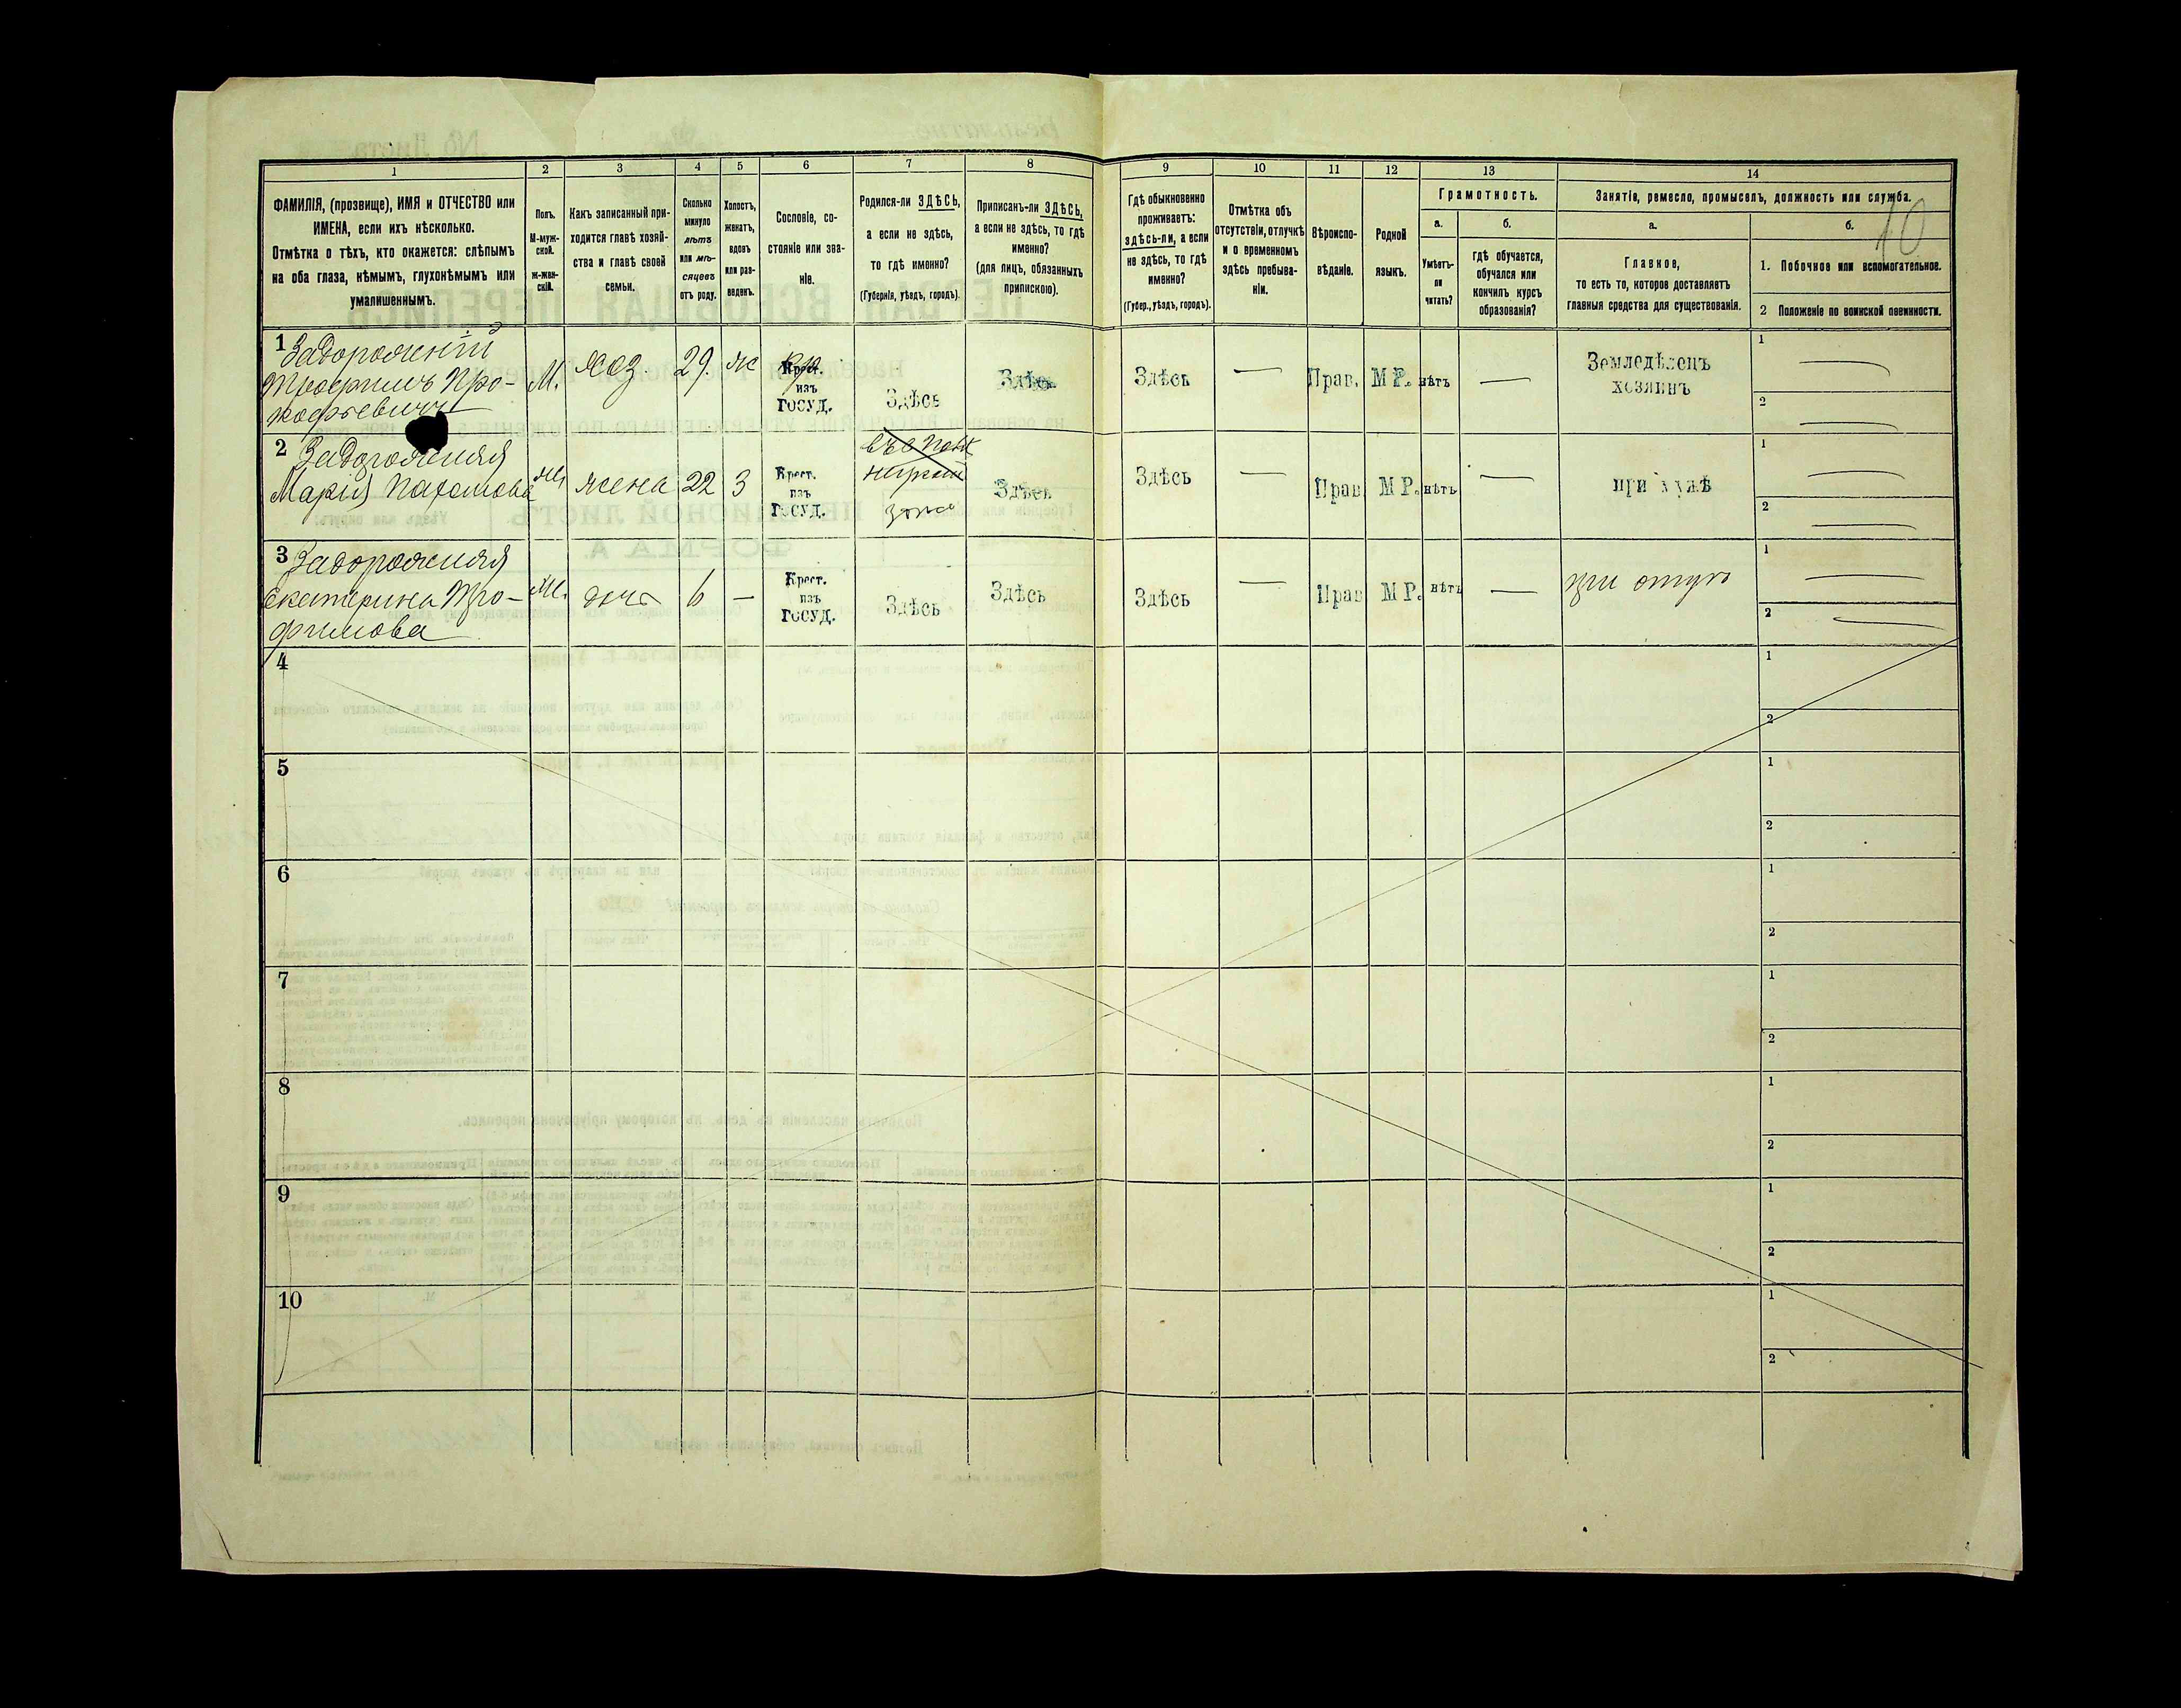 10
1
2
3
4
5
6
7
8
9
10
11
12
13
14
ФАМИЛІЯ, (прозвище), ИМЯ и ОТЧЕСТВО или
ИМЕНА, если ихъ нѣсколько.
Отмѣтка о тѣхъ, кто окажется: слѣпымъ
на оба глаза, нѣмымъ, глухонѣмымъ или
умалишеннымъ.
Полъ.
М-муж-
ской.
ж-жен-
скій.
Какъ записанный при-
ходится главѣ хозяй-
ства и главѣ своей
семьи.
Сколько
минуло
лѣтъ
или мѣ-
сяцевъ
отъ роду.
Холостъ,
женатъ,
вдовъ
или раз-
веденъ.
Сословіе, со-
стояніе или зва-
ніе.
Родился-ли ЗДѢСЬ,
а если не здѣсь,
то гдѣ именно?
(Губернія, уѣздъ, городъ).
Приписанъ-ли ЗДѢСЬ,
а если не здѣсь, то гдѣ
именно?
(для лицъ, обязанныхъ
припискою).
Гдѣ обыкновенно
проживаетъ:
здѣсь-ли, а если
не здѣсь, то гдѣ
именно?
(Губер., уѣздъ, городъ).
Отмѣтка объ
отсутствіи, отлучкѣ
и о временномъ
здѣсь пребыва-
ніи.
Вѣроиспо-
вѣданіе.
Родной
языкъ.
Грамотность.
а.
Умѣетъ-
ли
читать?
б.
гдѣ обучается,
обучался или
кончилъ курсъ
образованія?
Занятіе, ремесло, промыселъ, должность или служба.
а.
Главное,
то есть то, которое доставляетъ
главныя средства для существованія.
б.
1. Побочное или вспомогательное.
2 Положеніе по воинской повинности.
1 Задорожній
Трофимъ Про-
кофьевичъ
М.
хоз.
29.
ж
Крест.
изъ
ГОСУД.
Здѣсь
Здѣсь
Здѣсь
—
Прав.
М Р.
нѣтъ
—
Земледѣлецъ
хозяинъ
1 —
2 —
2 Задорожняя
Марія Пахомова
ж.
жена
22
З
Крест.
изъ
ГОСУД.
Здѣсь
Здѣсь
—
Прав
М Р.
нѣтъ
—
при мужѣ
1 —
2 —
3 Задорожняя
Екатерина Тро-
фимова
ж.
дочь
6
—
Крест.
изъ
ГОСУД.
Здѣсь
Здѣсь
Здѣсь
—
Прав
М Р.
нѣтъ
—
при отцѣ
1 —
2 —
4
1
2
5
1
2
6
1
2
7
1
2
8
1
2
9
1
2
10
1
2